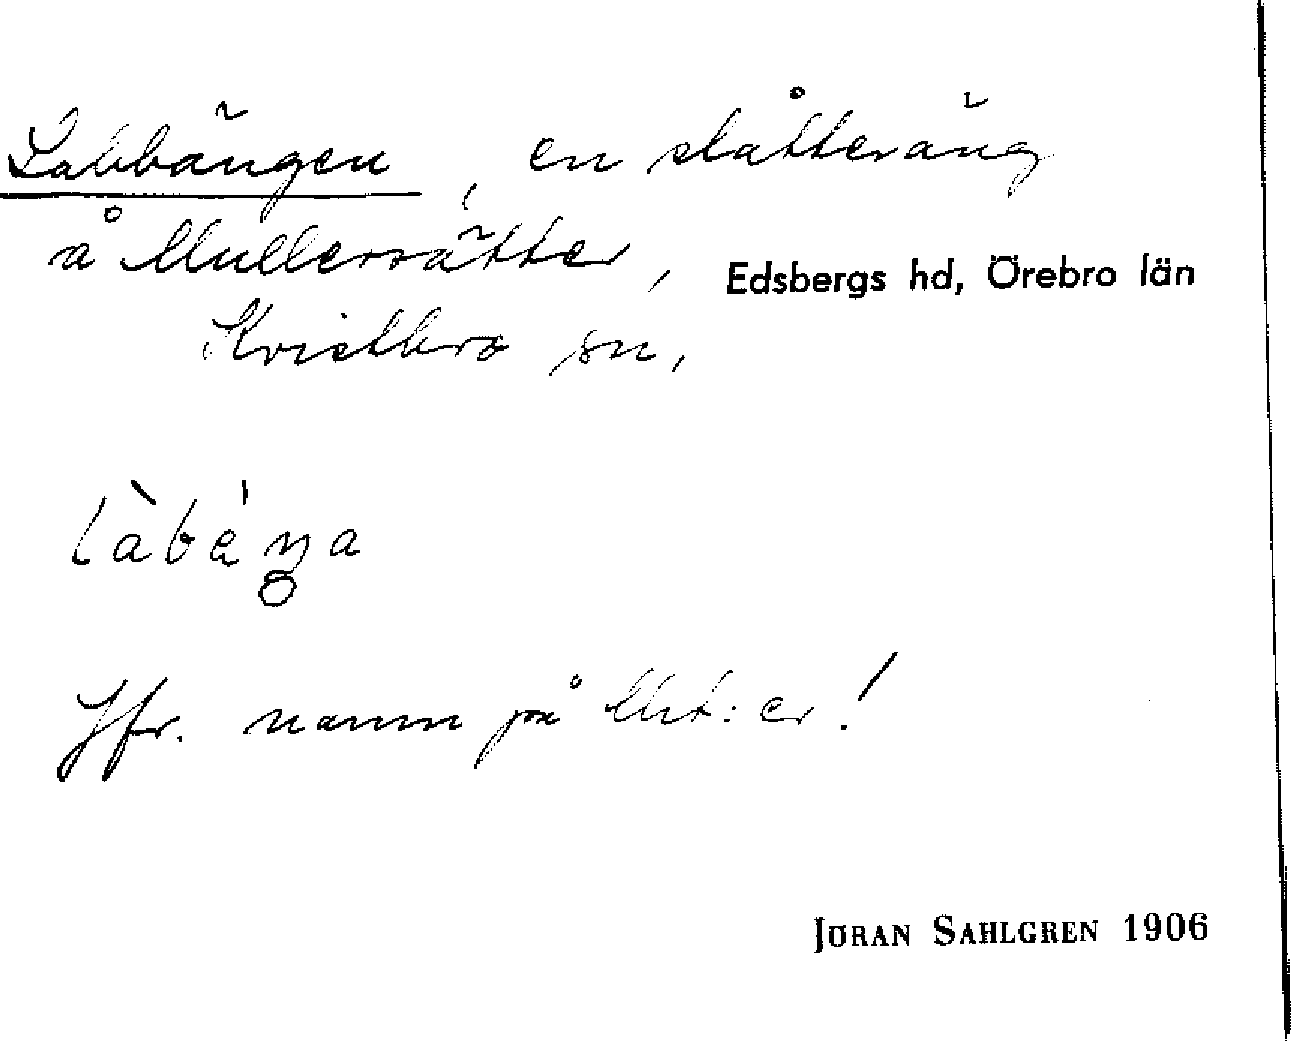 Labbängen, en slåtteräng
å Mullersätter, Edsbergs hd, Örebro län
Kvistbro sn,
làbèŋa
Jfr. namn på Mrt:er!
JÖRAN SAHLGREN 1906